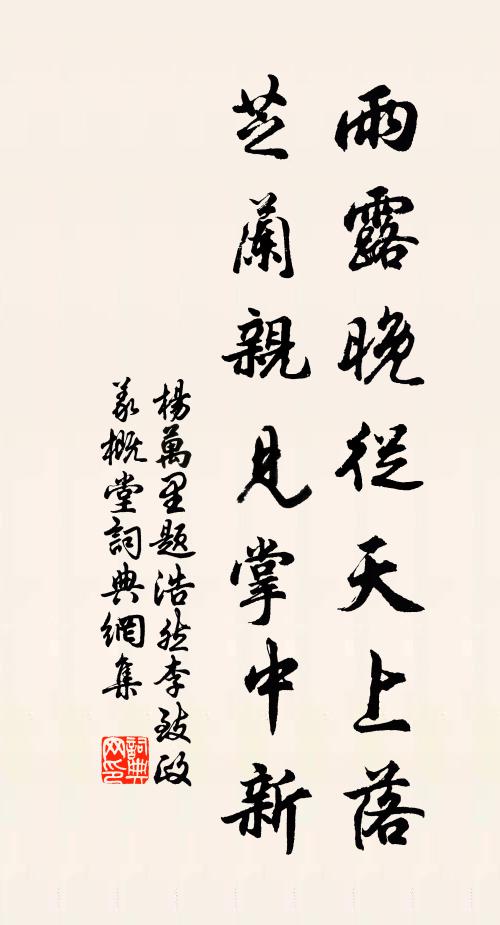 雨露晚從天上落
芝蘭親見掌中新
楊萬里題浩然李致政
義概堂詞典網集
詞典網印